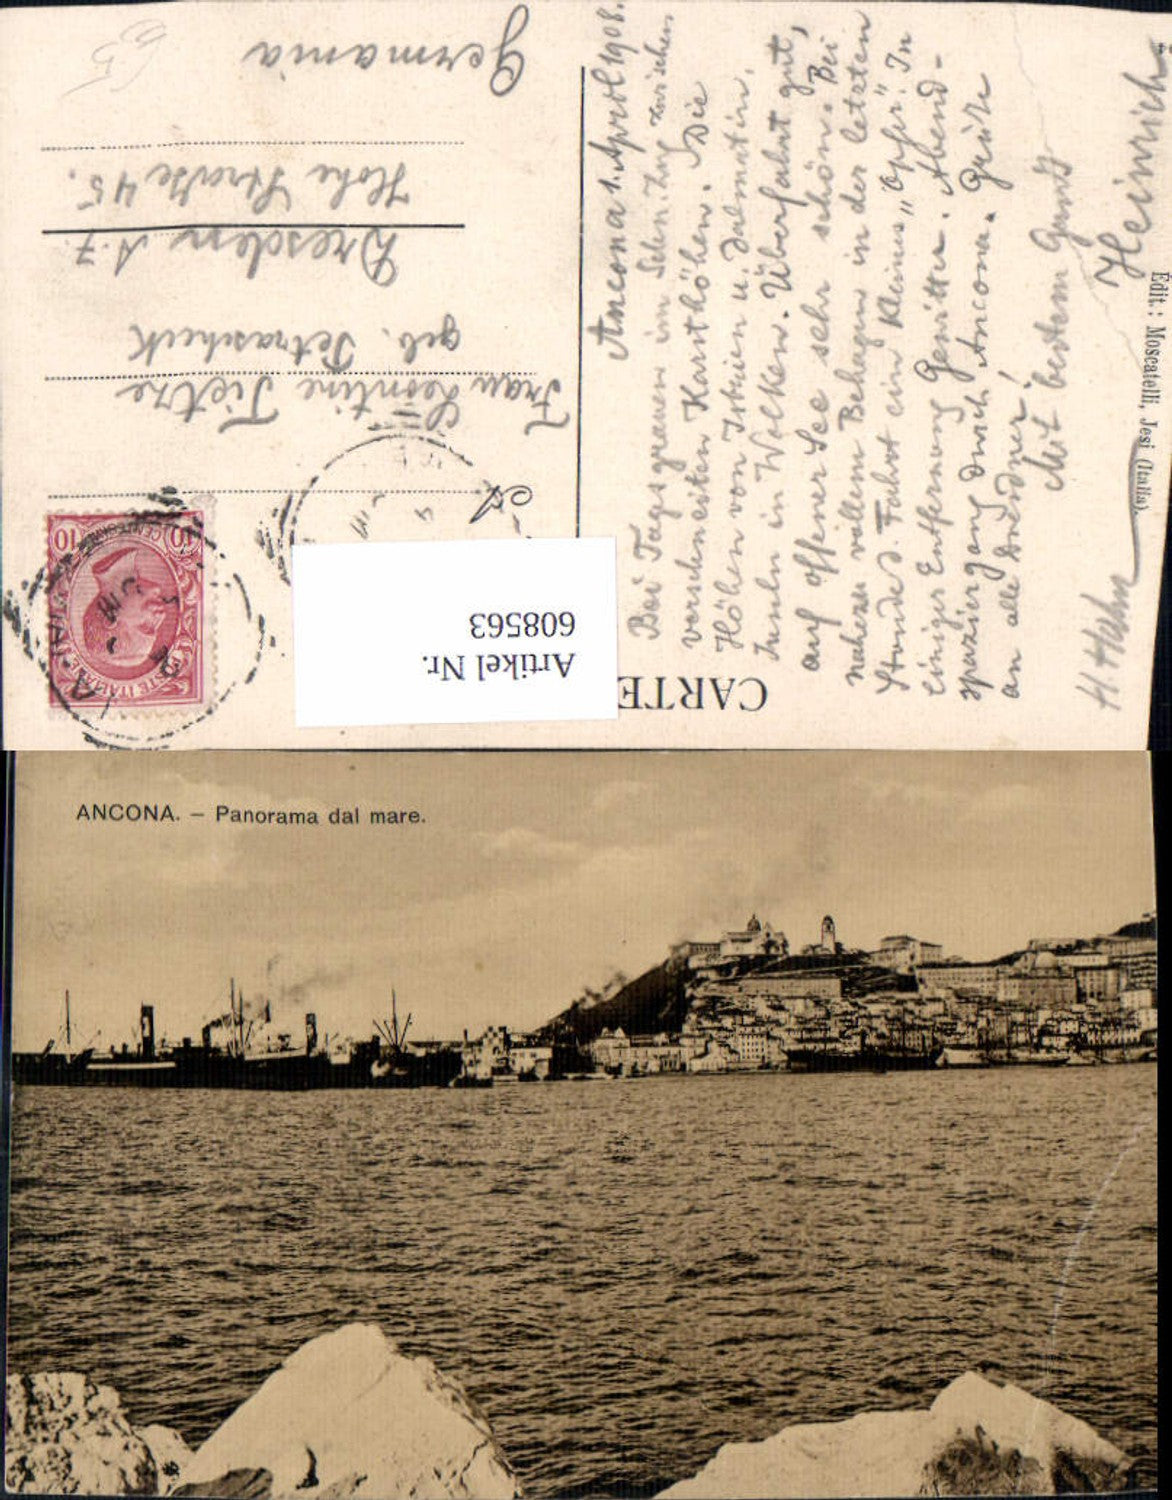 Germania
Hohe Straße 45.
Dresden A. 7.
geb. Petrascheck
Frau Leontine Tietze
A
10
10
POSTE ITALIANE
Artikel Nr.
608563
CARTE
Ancona 1. April 1908.
Bei Tagesgrauen im Schn. Zug zwischen
verschneiten Karsthöhen. Die
Höhen von Istrien u. Dalmatin.
Inseln in Wolken. Überfahrt gut,
auf offener See sehr schön. Bei
nahezu vollem Behagen in der letzten
Stunde d. Fahrt ein kleines „Opfer“. In
einiger Entfernung Gewitter. Abend-
spaziergang durch Ancona. Grüße
an alle Dresdner!
Mit bestem Gruß
Heinrich
H. Hahn
Edit.: Moscatelli, Jesi (Italia).
ANCONA. – Panorama dal mare.